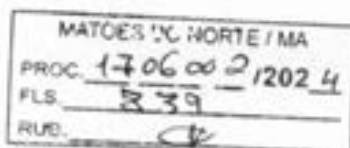 MATOES DO NORTE / MA
PROC. 1706002/2024
FLS. 339
RUB.